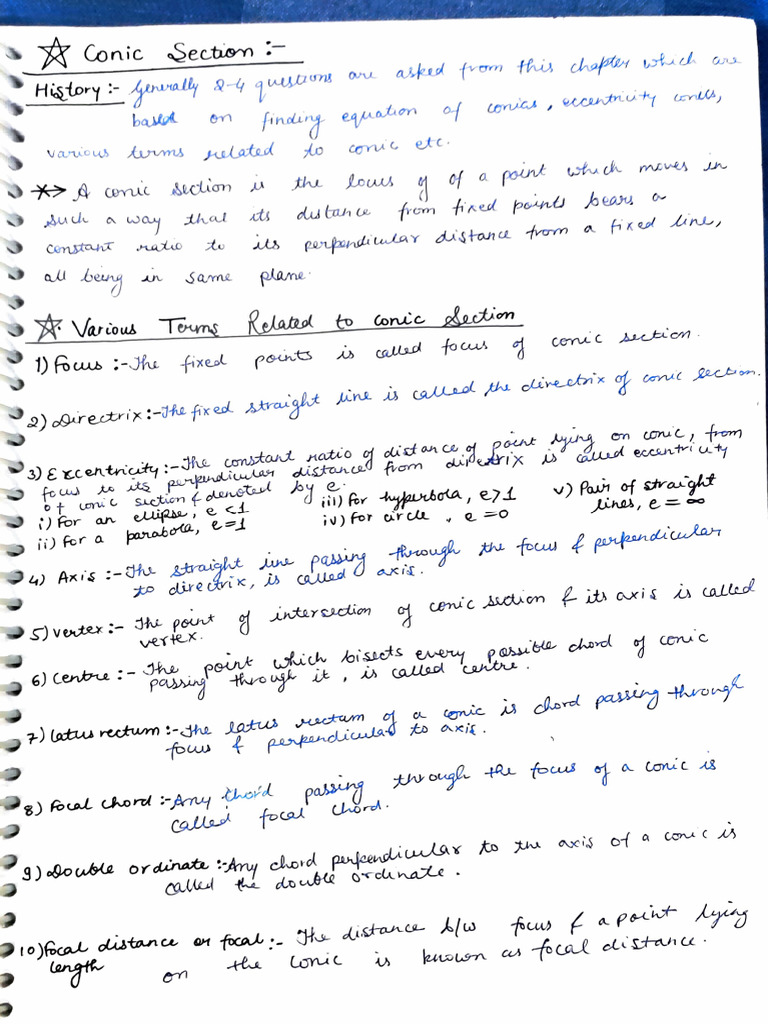 ☆ Conic Section :-
History :- Generally 2-4 questions are asked from this chapter which are
based on finding equation of conics, eccentricity
various terms related to conic etc.
*→ A conic section is the locus of of a point which moves in
such a way that its distance from fixed points bears a
constant ratio to its perpendicular distance from a fixed line,
all being in same plane.
☆. Various Terms Related to Conic Section
1) Focus :- The fixed points is called focus of conic section.
2) Directrix :- The fixed straight line is called the directrix of conic section.
3) Excentricity :- The constant ratio of distance of point lying on conic, from
focus to its perpendicular distance from directrix is called eccentricity
of conic section & denoted by e.
i) For an ellipse, e < 1 iii) For hyperbola, e > 1 v) Pair of straight
ii) For a parabola, e = 1 iv) For circle , e = 0 lines, e = ∞
4) Axis :- The straight line passing through the focus & perpendicular
to directrix, is called axis.
5) Vertex :- The point of intersection of conic section & its axis is called
vertex.
6) Centre :- The point which bisects every possible chord of conic
passing through it, is called centre.
7) Latus rectum :- The latus rectum of a conic is chord passing through
focus & perpendicular to axis.
8) Focal chord :- Any chord passing through the focus of a conic is
called focal chord.
9) Double ordinate :- Any chord perpendicular to the axis of a conic is
called the double ordinate.
10) Focal distance or focal :- The distance b/w focus & a point lying
length on the conic is known as focal distance.